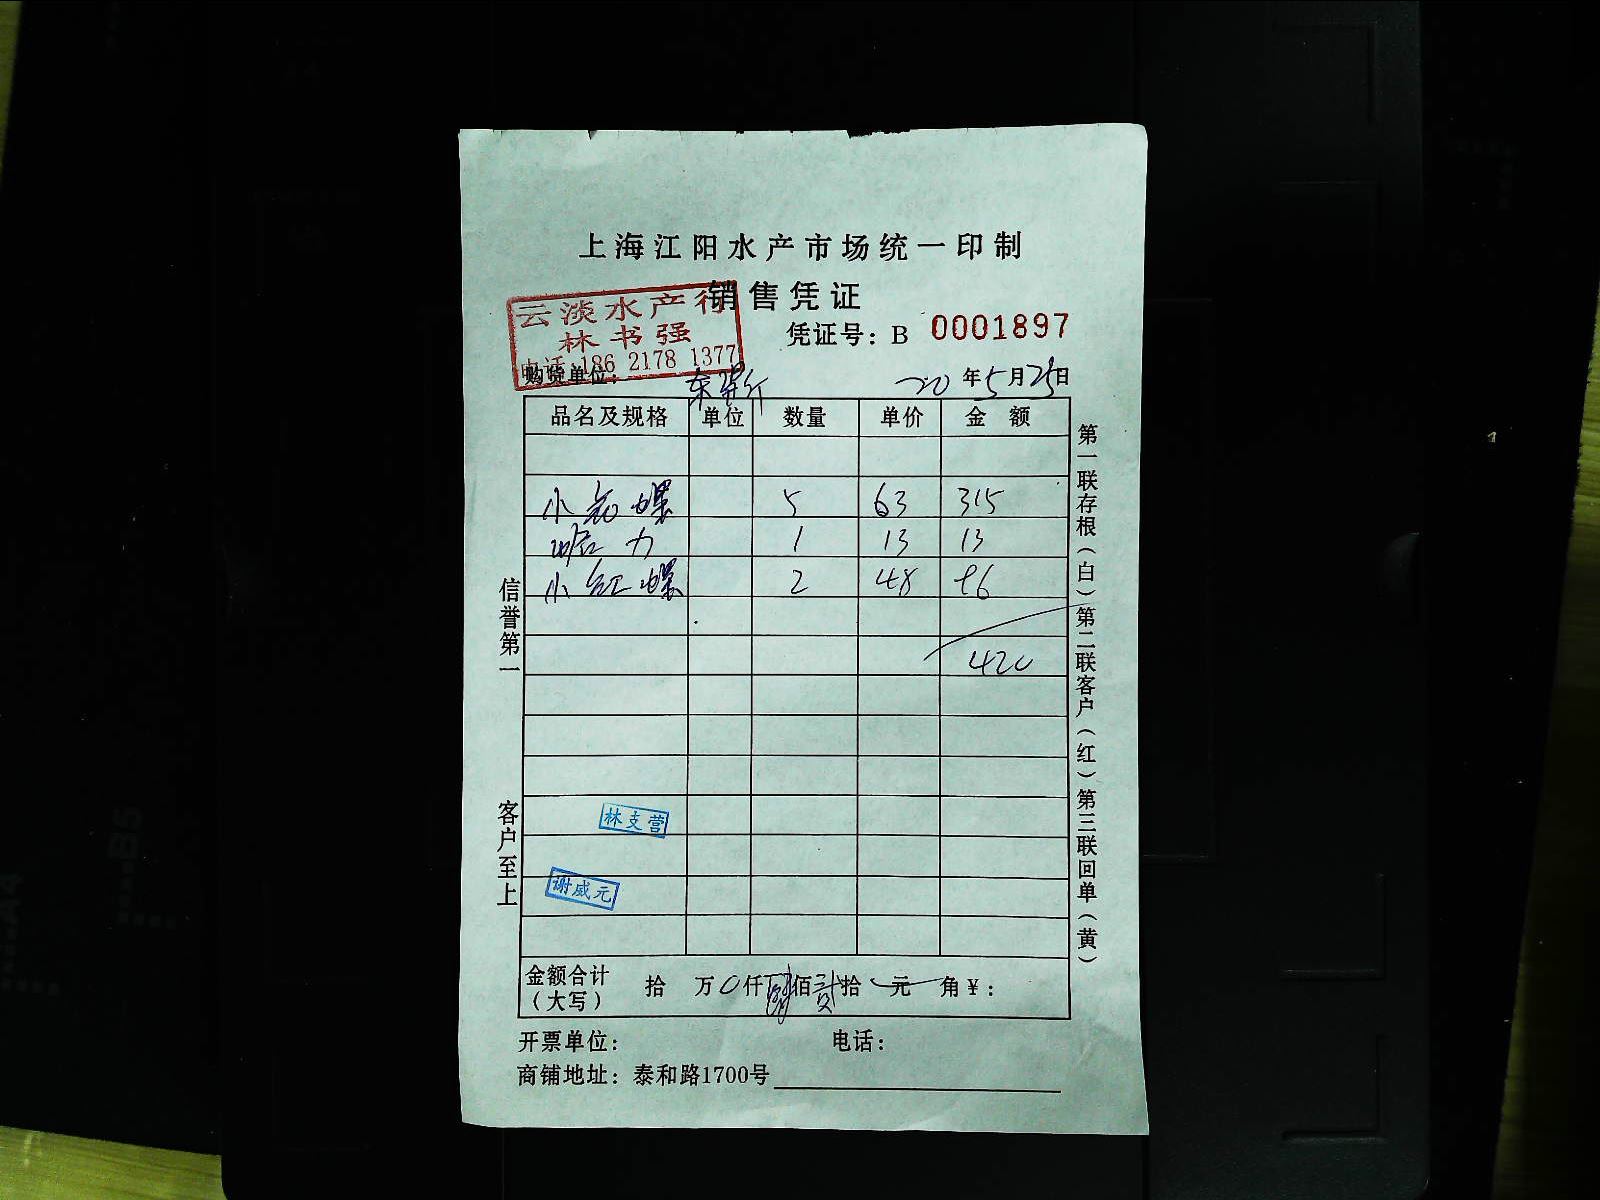 上海江阳水产市场统一印制
销售凭证
云淡水产行
林书强
电话:186 2178 1377
凭证号：B 0001897
购货单位：
20年5月25日
品名及规格 单位 数量 单价 金额
小花螺 5 63 315
蛤力 1 13 13
小红螺 2 48 96
420
林支营
谢威元
金额合计（大写） 拾 万0仟肆佰贰拾 元 角￥：
开票单位： 电话：
商铺地址：泰和路1700号
信誉第一 客户至上
第一联存根（白）第二联客户（红）第三联回单（黄）
B5
A4